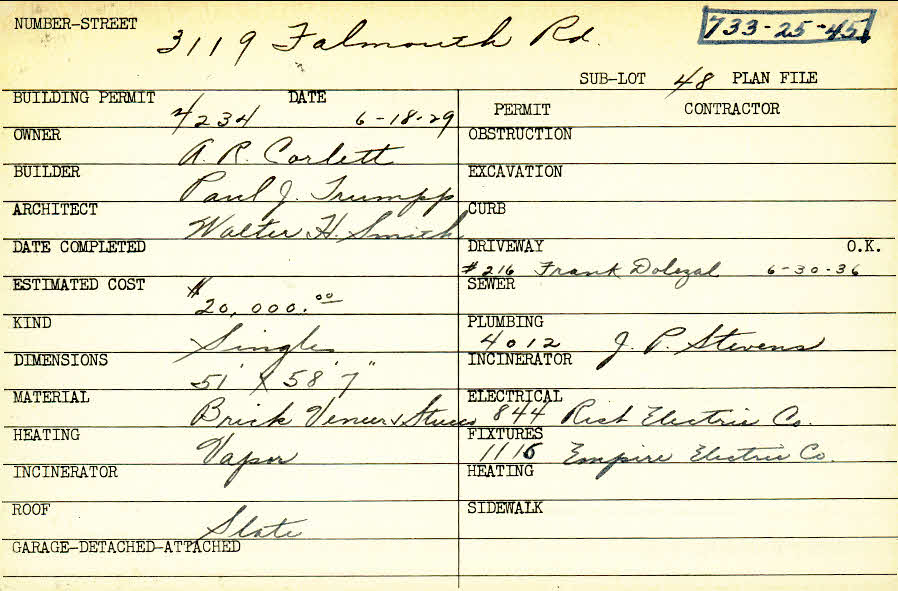 NUMBER-STREET 3119 Falmouth Rd. 733-25-45
SUB-LOT 48 PLAN FILE
BUILDING PERMIT 4234 DATE 6-18-29
OWNER A. R. Corlett
BUILDER Paul J. Trumpp
ARCHITECT Walter H. Smith
DATE COMPLETED
ESTIMATED COST $20,000.00
KIND Single
DIMENSIONS 51' X 58' 7"
MATERIAL Brick Veneer & Stucco
HEATING Vapor
INCINERATOR
ROOF Slate
GARAGE-DETACHED-ATTACHED
PERMIT CONTRACTOR
OBSTRUCTION
EXCAVATION
CURB
DRIVEWAY O.K.
#216 Frank Dolezal 6-30-36
SEWER
PLUMBING
4012 J. P. Stevens
INCINERATOR
ELECTRICAL
844 Rich Electric Co.
FIXTURES
1116 Empire Electric Co.
HEATING
SIDEWALK